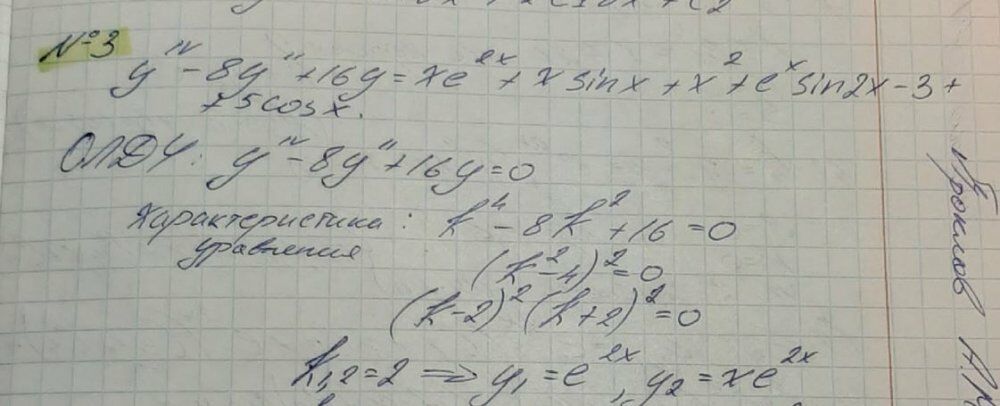 №3
y^IV - 8y'' + 16y = xe^2x + x sinx + x^2 + e^x sin2x - 3 +
+ 5cosx.
ОЛДУ: y^IV - 8y'' + 16y = 0
Характеристика : k^4 - 8k^2 + 16 = 0
уравнения
(k^2 - 4)^2 = 0
(k-2)^2 (k+2)^2 = 0
k1,2 = 2 => y1 = e^2x, y2 = xe^2x